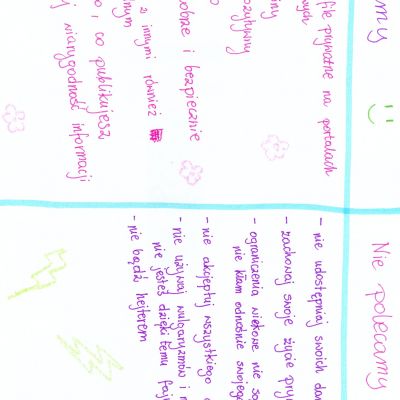 amy
file prywatne na portalach
ych
iny
ozytywny
obrze i bezpiecznie
z innymi również
nym
o, co publikujesz
j wiarygodność informacji
Nie polecamy
- nie udostępniaj swoich dan
- zachowaj swoje życie pry
- ograniczenia wiekowe nie są
nie kłam odnośnie swojego
- nie akceptuj wszystkiego
- nie używaj wulgaryzmów i n
nie jesteś dzięki temu faj
- nie bądź hejterem